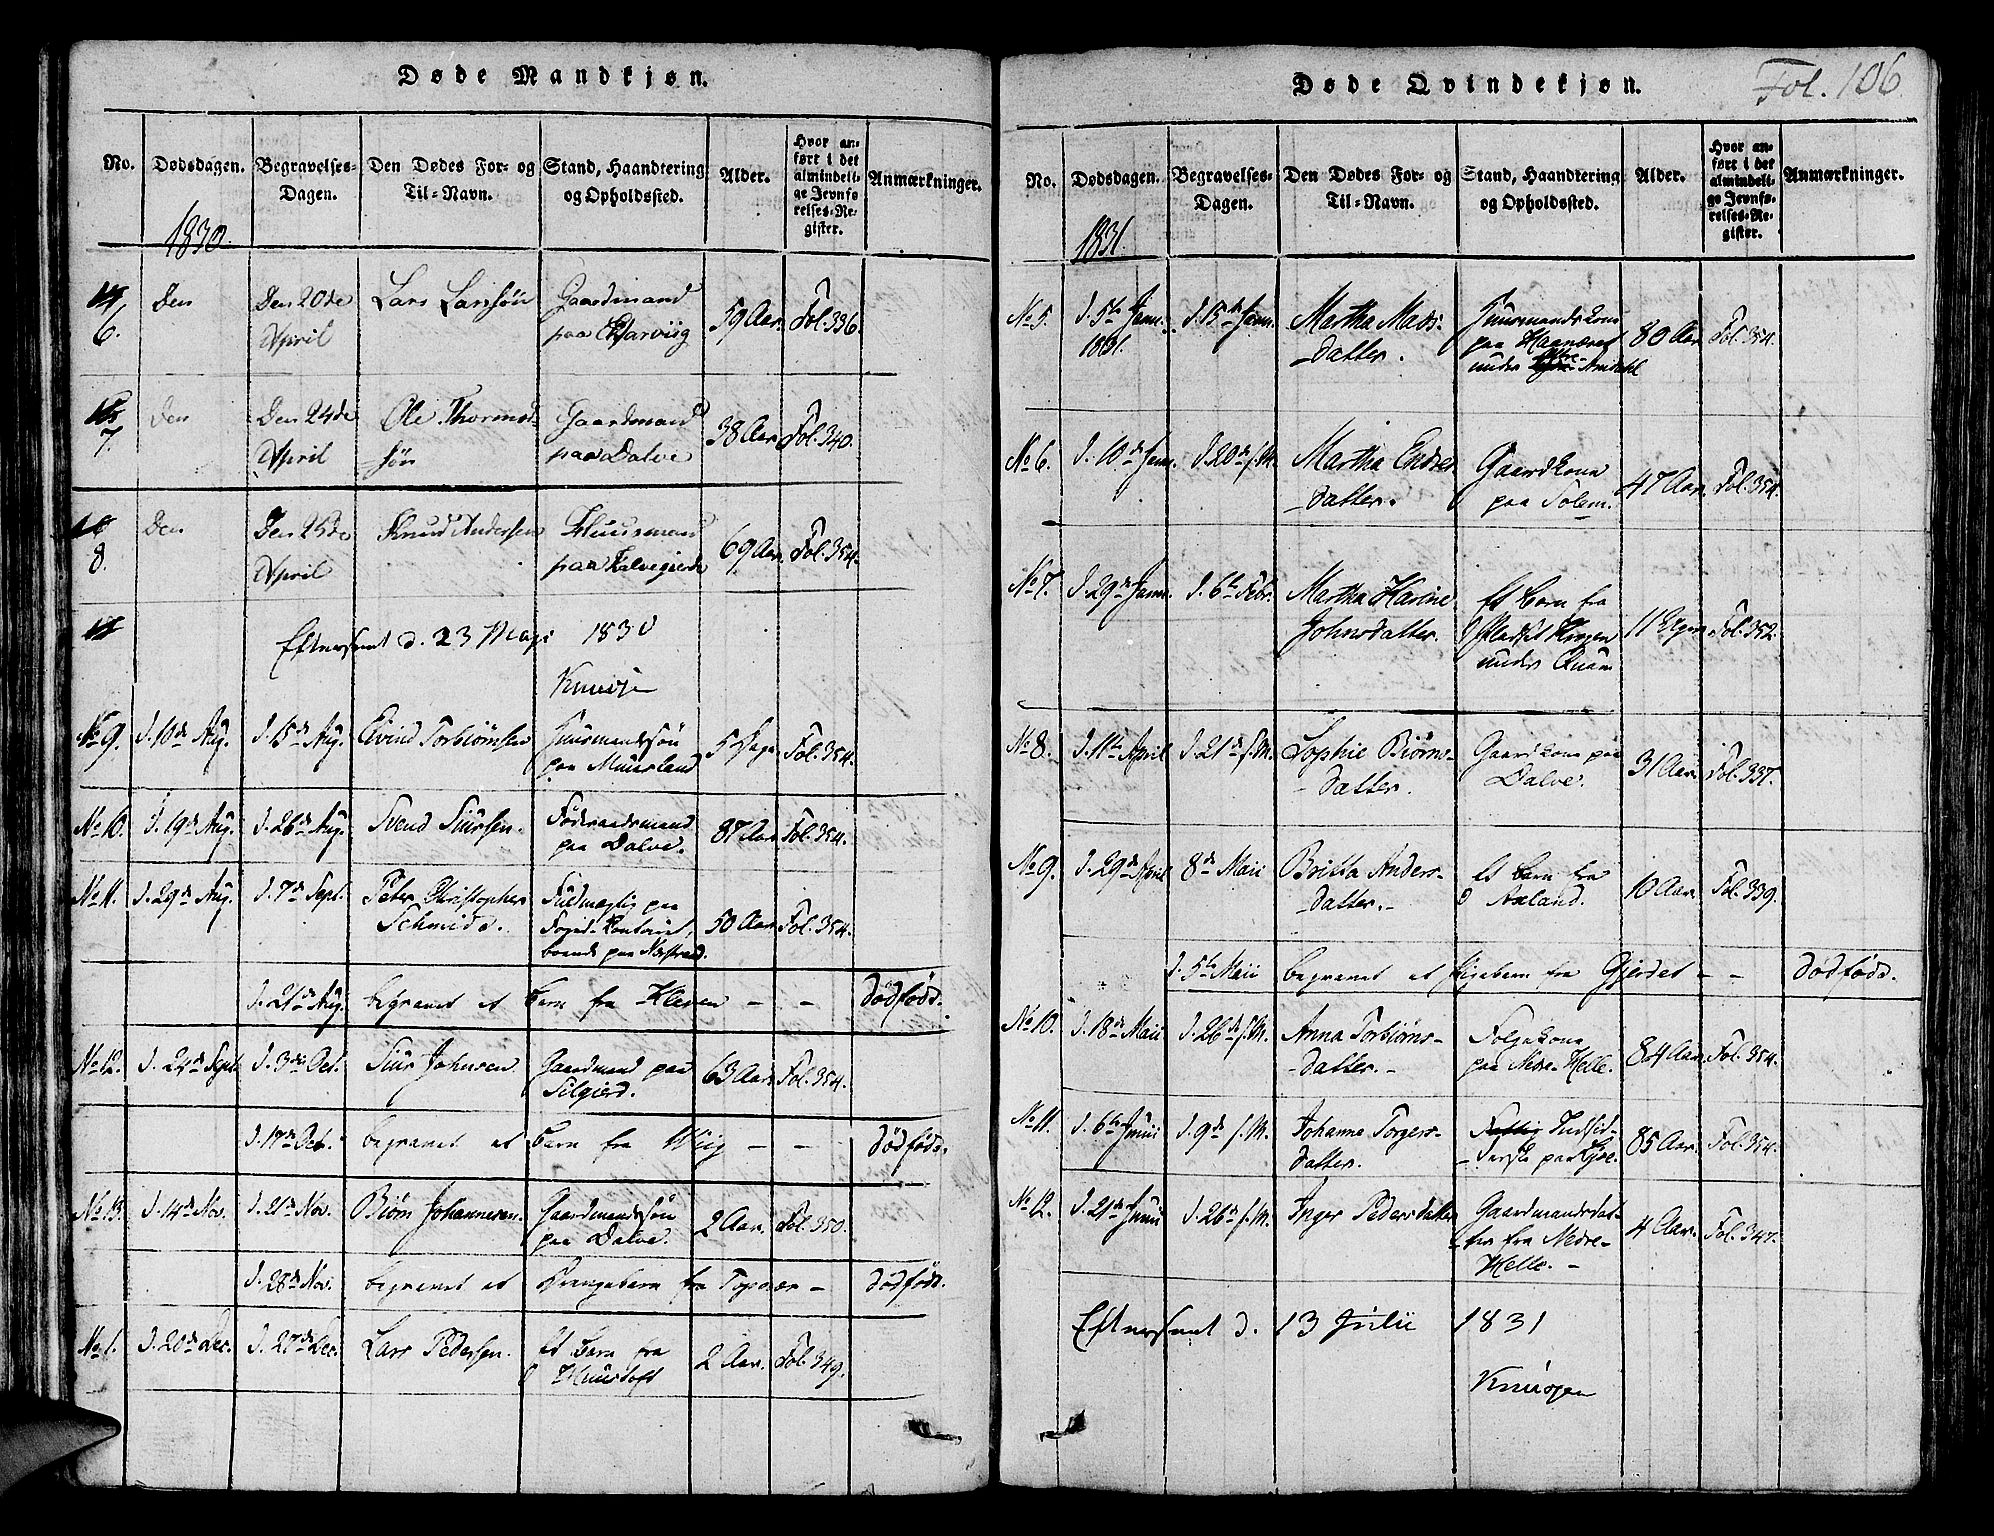 Døde Mandkjøn.
No. Dødsdagen. Begravelses-Dagen. Den Dødes For- og Til-Navn. Stand, Haandtering og Opholdssted. Alder. Hvor anført i det almindelige Jevnførelses-Register. Anmærkninger.
1830
6. Den Den 20de April Lars Larssøn Gaardmand paa 59 Aar. Fol. 336
7. Den Den 24de April Ole Thormodsøn Gaardmand paa Dalve 38 Aar Fol. 340.
8. Den Den 25de April Knud Andersen Huusmand paa 69 Aar. Fol. 354.
Efterseet d. 23 Maji 1830
No 9. d. 10de Aug. d. 15de Aug. Eivind Torbiørnsen Huusmandssøn paa Muusland 5 Dage Fol. 354.
No 10. d. 19de Aug. d. 26de Aug. Svend Siursen. Føderaadsmand paa Dalve. 87 Aar Fol. 354.
No 11. d. 29de Aug. d. 7de Sept. Peter Christopher Schmidt. Fuldmægtig paa Foged-Kontoiret, boende paa Nerstrand. 50 Aar Fol. 354.
d. 21de Aug. begravet et Barn fra Kleven - - dødfødt.
No 12. d. 24de Sept. d. 3die Oct. Siur Johnsen Gaardmand paa Selgierd. 63 Aar Fol. 354.
d. 17de Oct. begravet et Barn fra Wiig - - dødfødt.
No 13. d. 14de Nov. d. 21de Nov. Biørn Johannesen. Gaardmandssøn paa Dalve. 2 Aar. Fol. 350.
d. 28de Nov. begravet et Drengebarn fra - dødfødt.
No 1. d. 20de Dec. d. 27de Dec. Lars Pedersen. Et Barn fra Huustoft 2 Aar. Fol. 349.
Døde Qvindekjøn. Fol. 106
No. Dødsdagen. Begravelses-Dagen. Den Dødes For- og Til-Navn. Stand, Haandtering og Opholdssted. Alder. Hvor anført i det almindelige Jevnførelses-Register. Anmærkninger.
1831.
No 5. d. 5te Janr. 1831. d. 15de Janr. Martha Madsdatter. Huusmandskone paa under Amdahl 80 Aar Fol. 354.
No 6. d. 10de Janr. d. 20de s. M. Martha Endresdatter. Gaardkone paa Solem. 47 Aar. Fol. 354.
No 7. d. 29de Janr. d. 6te Febr. Martha Karine Johnsdatter. Et Barn fra Pladset Krogen under Quam 11 Uger Fol. 352.
No 8. d. 11te April d. 21de s. M. Sophie Biørnsdatter. Gaardkone paa Dalve. 31 Aar Fol. 337.
No 9. d. 29de April 8de Maii Britta Andersdatter. - et Barn fra Axland. 10 Aar. Fol. 339.
d. 5te Maii begravet et Pigebarn fra Gjerdet - - dødfødt.
No 10. d. 18de Maii d. 26de s. M. Anna Torbiørnsdatter. - Folgekone paa Nedre-Helle. 84 Aar Fol. 354.
No 11. d. 6te Junii d. 9de s. M. Johanna Torgersdatter. Indsidderske paa 85 Aar. Fol. 354.
No 12. d. 21de Junii d. 26de s. M. Inger Pedersdatter Gaardmandsdatter fra Nedre-Helle. - 4 Aar. Fol. 347.
Efterseet d. 13 Julii 1831